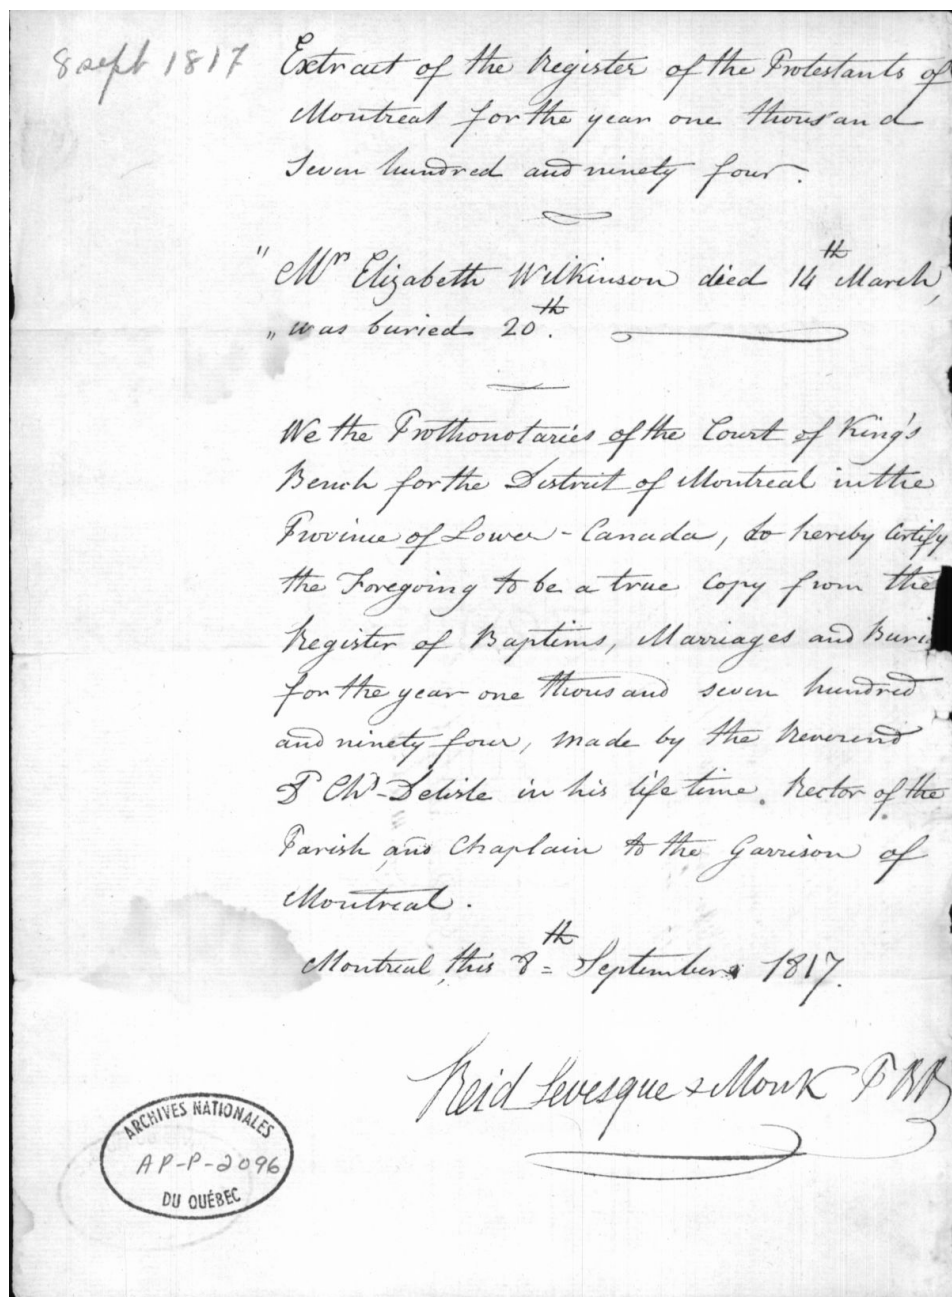 8 sept 1817
Extract of the Register of the Protestants of
Montreal for the year one thousand
Seven hundred and ninety four.
" Mrs Elizabeth Wilkinson died 14th March,
" was buried 20th.
We the Prothonotaries of the Court of King's
Bench for the District of Montreal in the
Province of Lower-Canada, do hereby certify
the Foregoing to be a true Copy from the
Register of Baptims, Marriages and Buri
for the year one thousand seven hundred
and ninety four, made by the Reverend
D Chd Delisle in his life time. Rector of the
Parish and Chaplain to the Garrison of
Montreal.
Montreal, this 8th September 1817.
Reid Levesque & Monk P BR
ARCHIVES NATIONALES
AP-P-2096
DU QUÉBEC